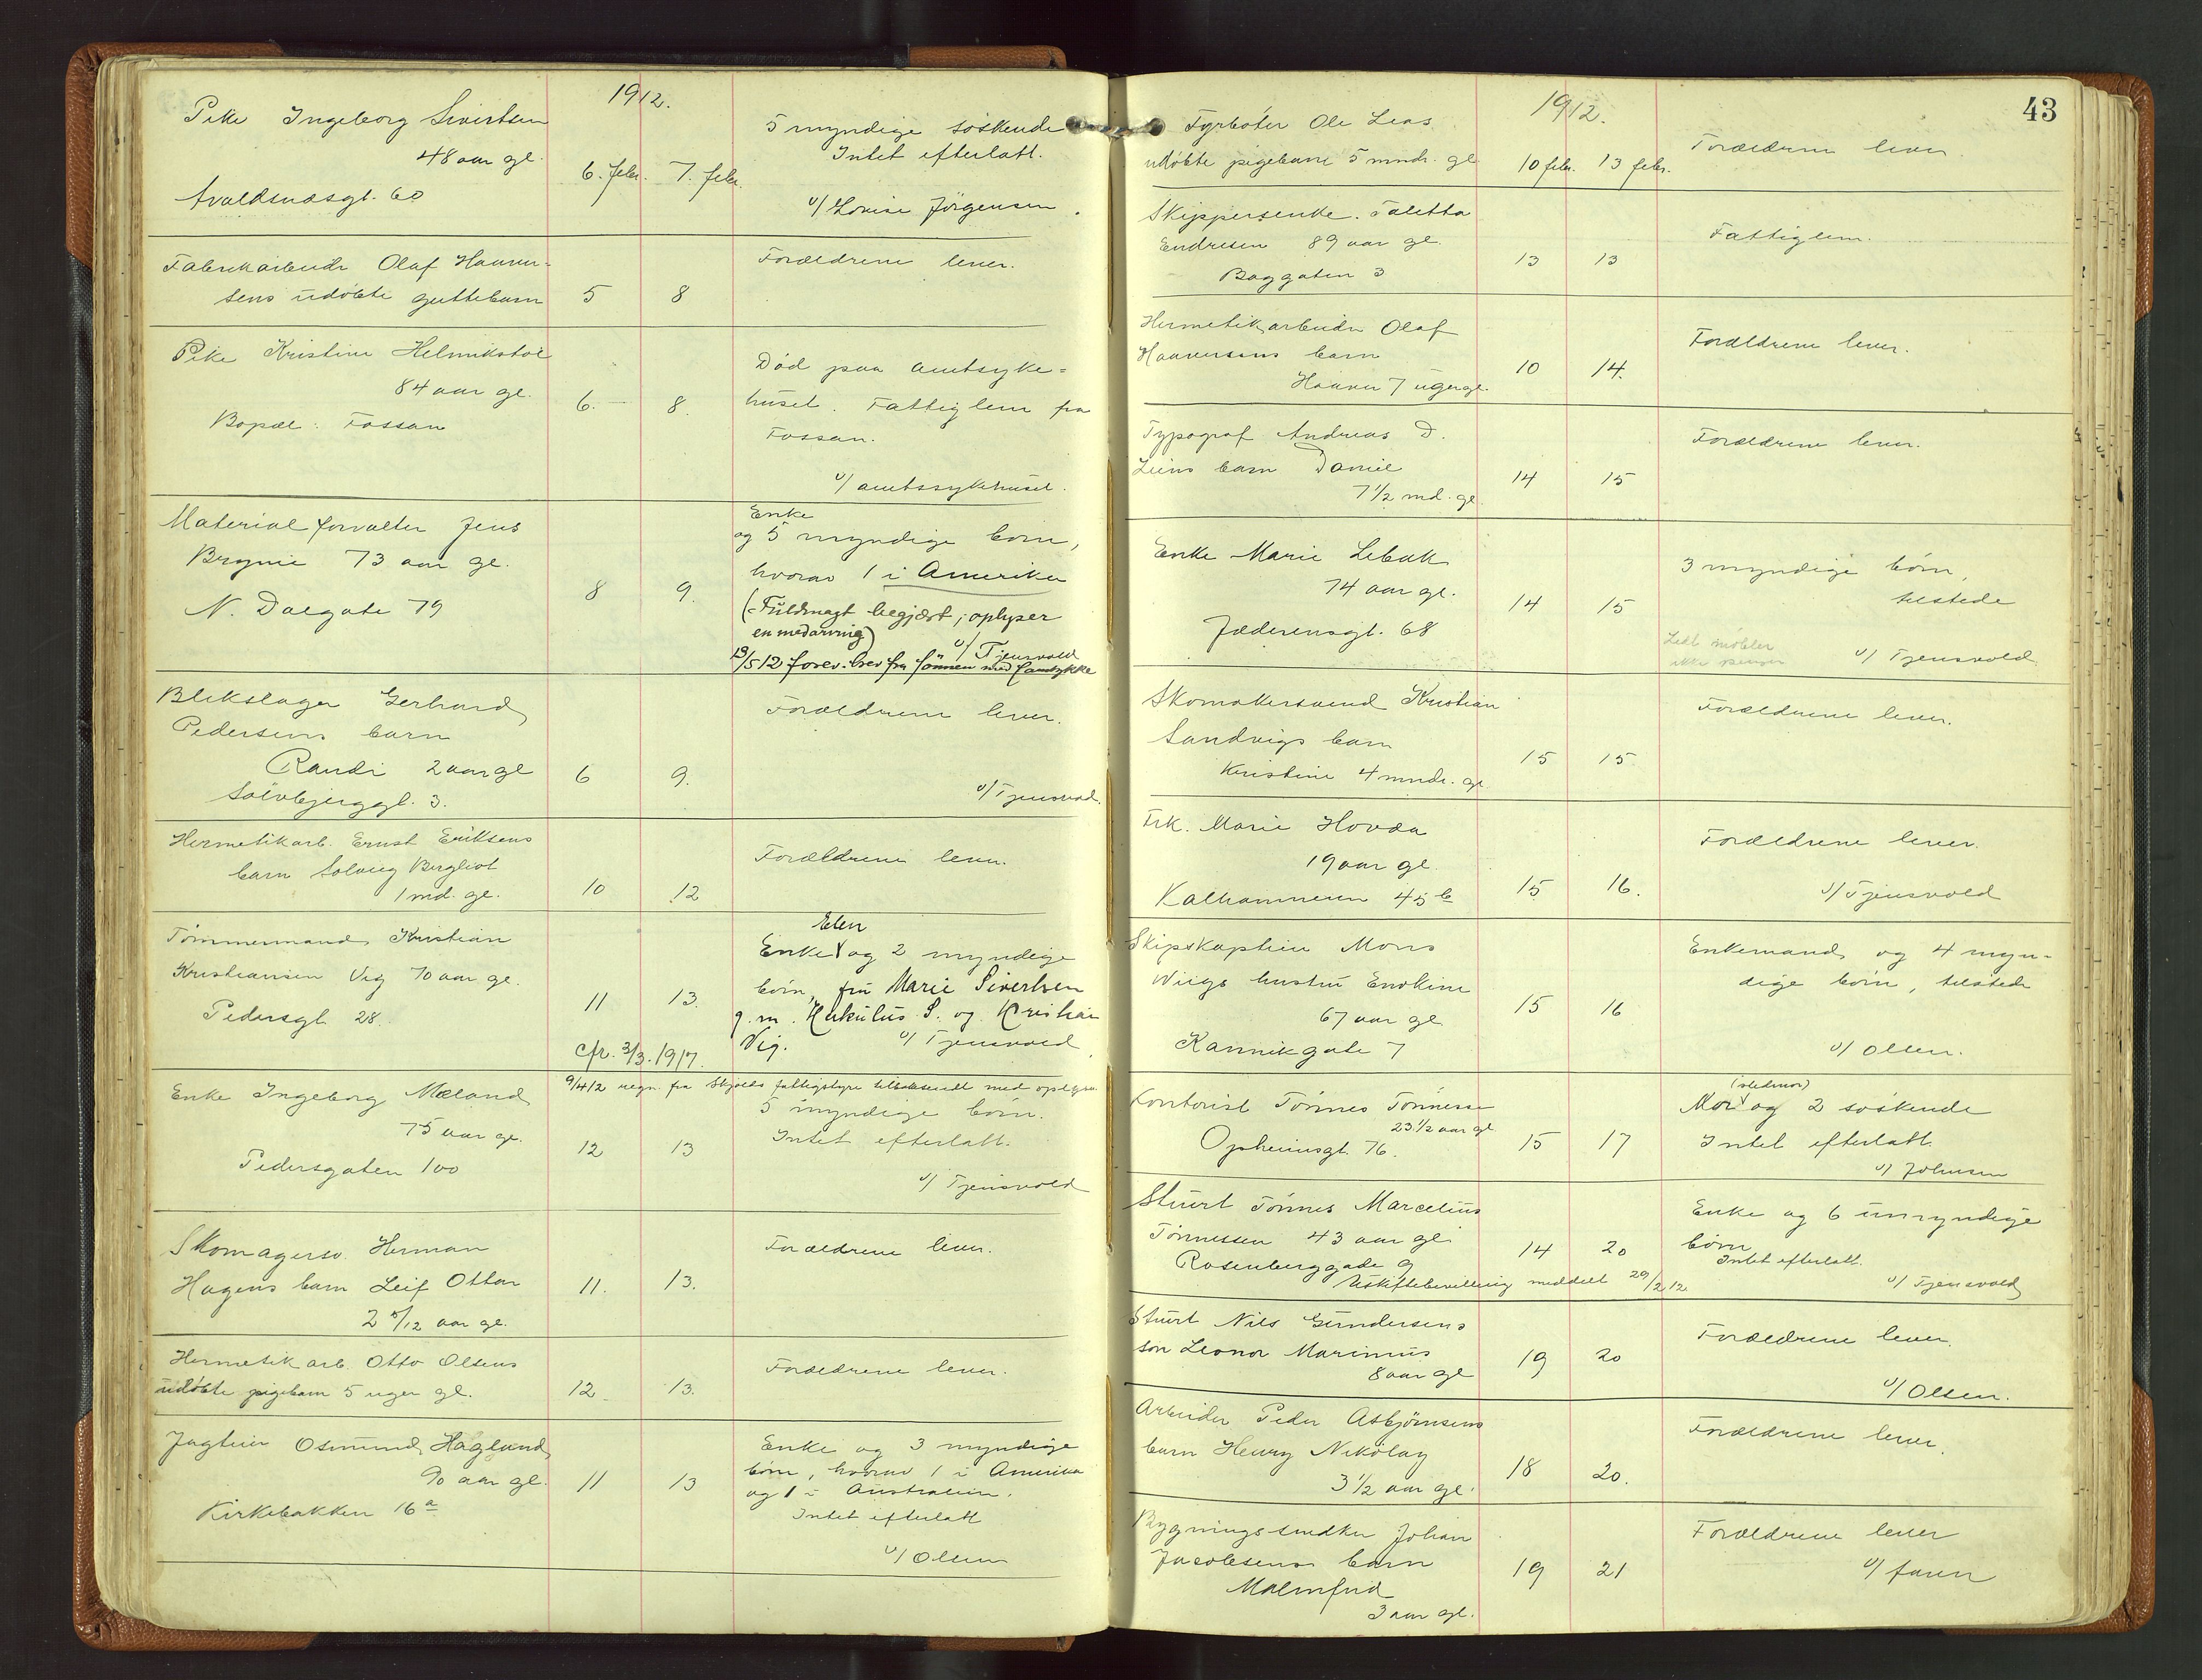 1912.
Pike Ingeborg Sivertsen
48 aar gl.
Avaldsnæsgt. 60
6. febr. 7. febr.
5 myndige søskende
Intet efterlatt.
v/ Lovise Jørgensen
Fabrikarbeider Olaf Haaver-
sens udøbte guttebarn
5 8
Forældrene lever.
Pike Kristine Helmikstøl
84 aar gl.
Bopæl: Fossan
6. — 8.
Død paa amtsyke-
huset. Fattiglem fra
Fossan.
v/ amtssykehuset.
Materialforvalter Jens
Brynie 73 aar gl.
N. Dalgate 79
8 9.
Enke
og 5 myndige børn,
hvorav 1 i Amerika
(Fuldmagt begjært, oplyser
en medarving)
v/ Tjensvold
19/5 12 forev. brev fra sønnen med samtykke
Blikslager Gerhard
Pedersens barn
Randi 2 aar gl
Sølvbjerggt. 3.
6 9.
Forældrene lever.
v/ Tjensvold.
Hermetikarb. Ernst Eriksens
barn Solveig Bergliot
1 md. gl.
10 12
Forældrene lever.
Tømmermand Kristian
Kristiansen Vig 70 aar gl.
Pedersgt. 28.
11 13.
cfr. 3/3. 1917.
Elen
Enke og 2 myndige
børn, fru Marie Sivertsen
g. m. Herkulus S. og Kristian
Vig.
v/ Tjensvold
9/4 12 regn. fra Skjolds fattigstyre tilbakesendt med oplysn.
Enke Ingeborg Mæland
75 aar gl.
Pedersgaten 100
12 13
5 myndige børn.
Intet efterlatt.
v/ Tjensvold
Skomagersv. Herman
Hagens barn Leif Ottar
2 5/12 aar gl.
11. 13.
Forældrene lever.
Hermetikarb. Otto Olsens
udøbte pigebarn 5 uger gl.
12 13.
Forældrene lever.
Jagteier Osmund Haglund
90 aar gl.
Kirkebakken 16a
11 13
Enke og 3 myndige
børn, hvorav 1 i Amerika
og 1 i Australien.
Intet efterlatt
v/ Olsen
43
1912.
Fyrbøter Ole Leas
udøbte pigebarn 5 mndr. gl
10 febr. 13 febr.
Forældrene lever
Skipperenke Taletta
Endresen 89 aar gl.
Baggaten 3
13 13
Fattiglem.
Hermetikarbeider Olaf
Haaversens barn
Haaver 7 uger gl.
10 14.
Forældrene lever.
Typograf Andreas D.
Leins barn Daniel
7 1/2 md. gl.
14 15
Forældrene lever.
Enke Marie Lebak
74 aar gl.
Jæderensgt. 68
14 15
3 myndige børn,
tilstede
Litt møbler
ikke penger
v/ Tjensvold
Skomakersvend Kristian
Sandvigs barn
Kristine 4 mndr. gl
15 15
Forældrene lever.
Frk. Marie Hovda
19 aar gl.
Kalhammeren 45 b
15 16.
Forældrene lever.
v/ Tjensvold
Skipskaptein Mons
Wiigs hustru Enokine
67 aar gl
Kannikgate 7
15 16
Enkemand og 4 myn-
dige børn, tilstede
v/ Olsen.
Kontorist Tønnes Tønnesen
23 1/2 aar gl
Opheimsgt. 76.
15 17
(stedmor)
Mor og 2 søskende
Intet efterlatt
v/ Johnsen
Stuert Tønnes Marcelius
Tønnessen 43 aar gl.
Rosenberggade 9
14 20
Enke og 6 umyndige
børn
Intet efterlatt.
Uskiftebevilling meddelt 29/2 12
v/ Tjensvold
Stuert Nils Gundersens
søn Leonor Marinius
8 aar gl
19 20
Forældrene lever
v/ Olsen.
Arbeider Peder Asbjørnsens
barn Henry Nikolay
3 1/2 aar gl.
18 20.
Forældrene lever.
Bygningssnedker Johan
Jacobsens barn
Malmfrid
3 aar gl.
19 21
Forældrene lever
v/ faren